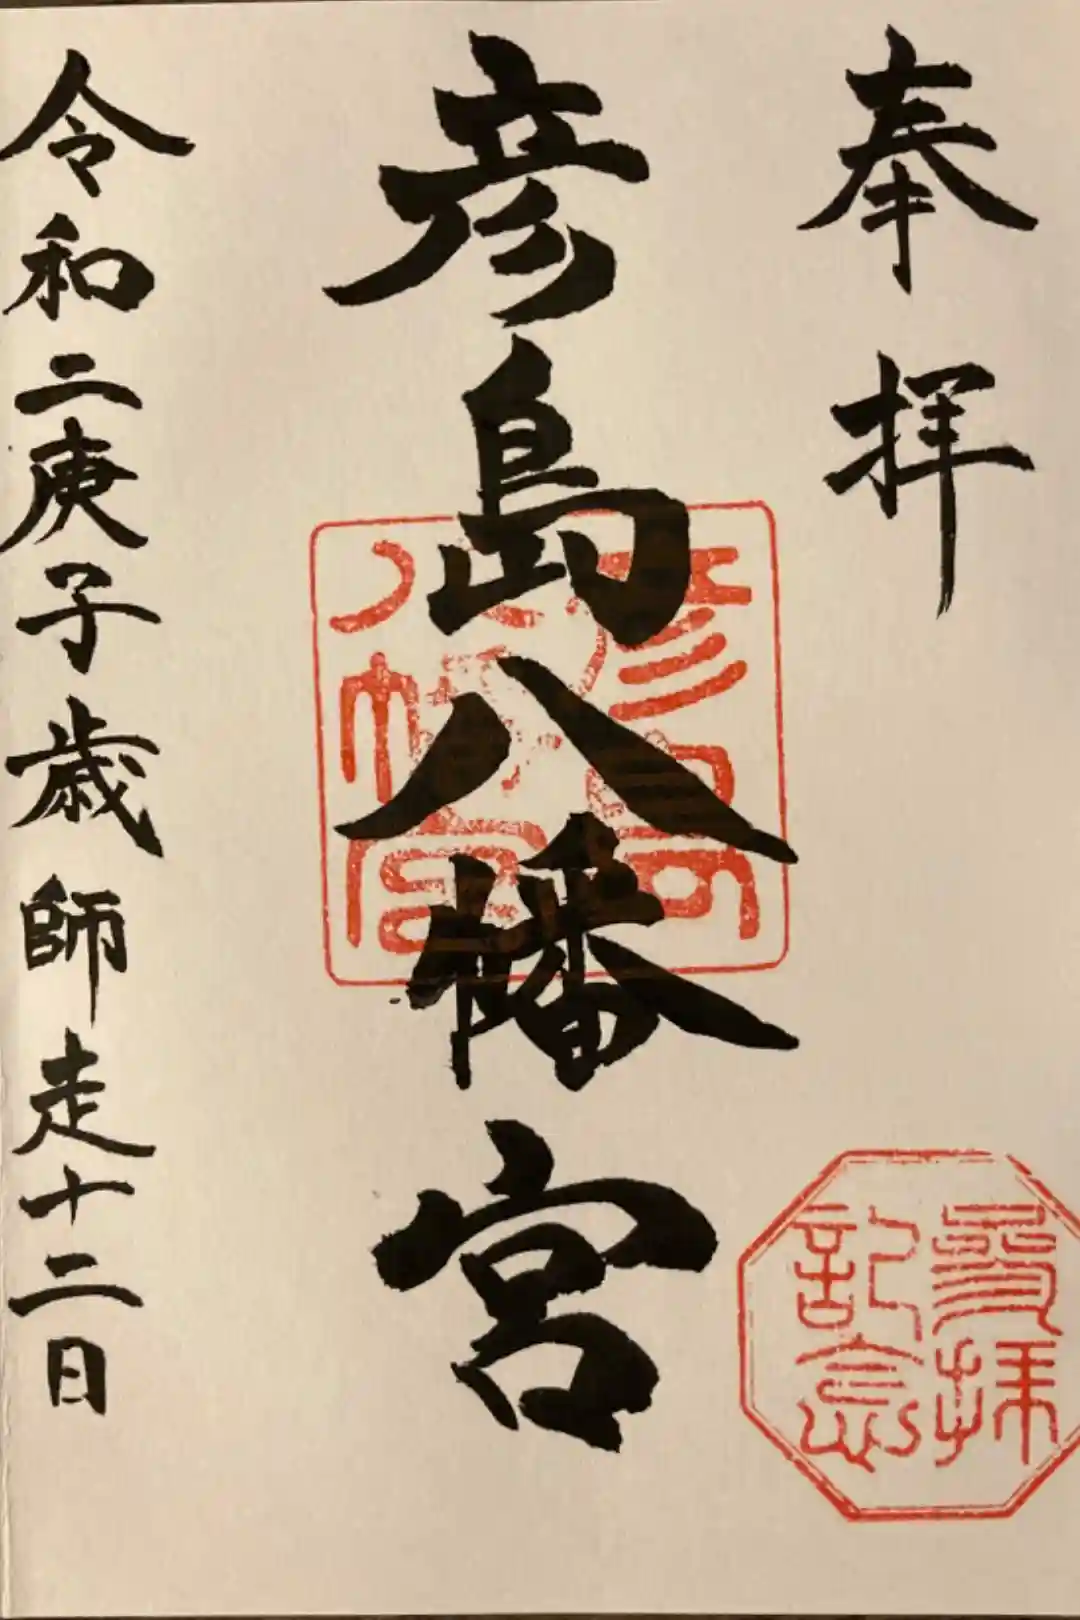 奉拝
彦島八幡宮
令和二庚子歳師走十二日
彦島
八幡宮
参拝
記念